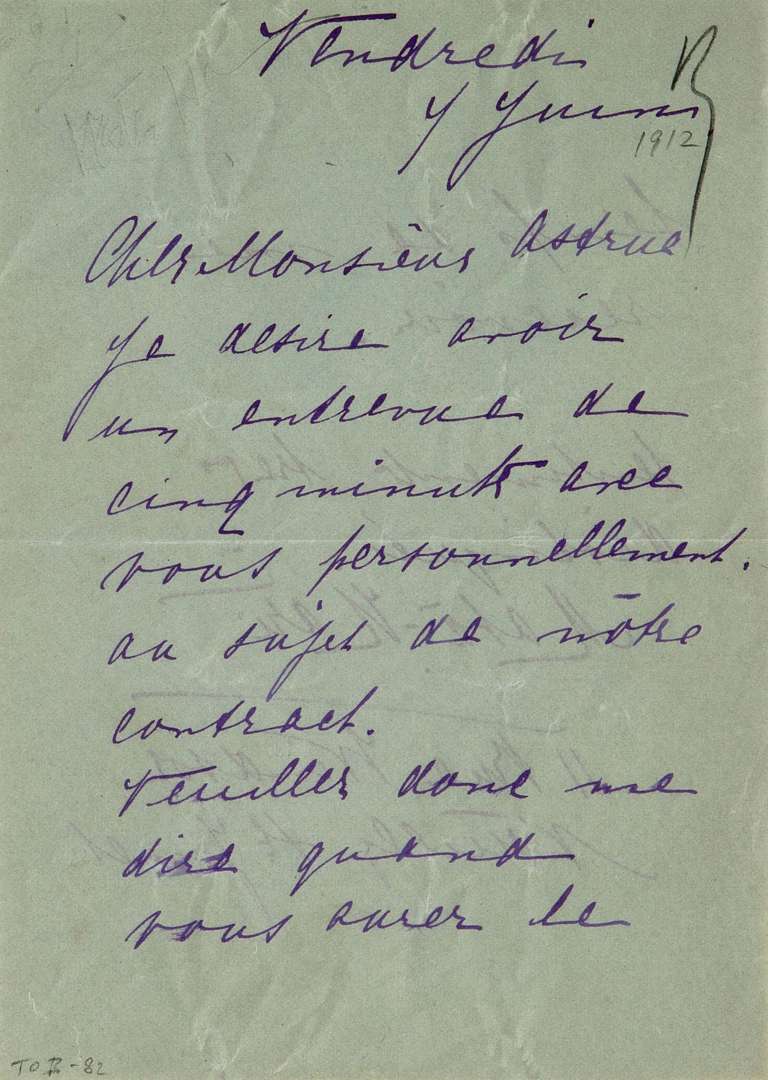 Vendredi
7 Juin
1912
Cher Monsieur Astruc
Je desire avoir
un entrevue de
cinq minuts avec
vous personnellement.
au sujet de nôtre
contract.
Veuillez donc me
dire quand
vous aurez le
TOB-82